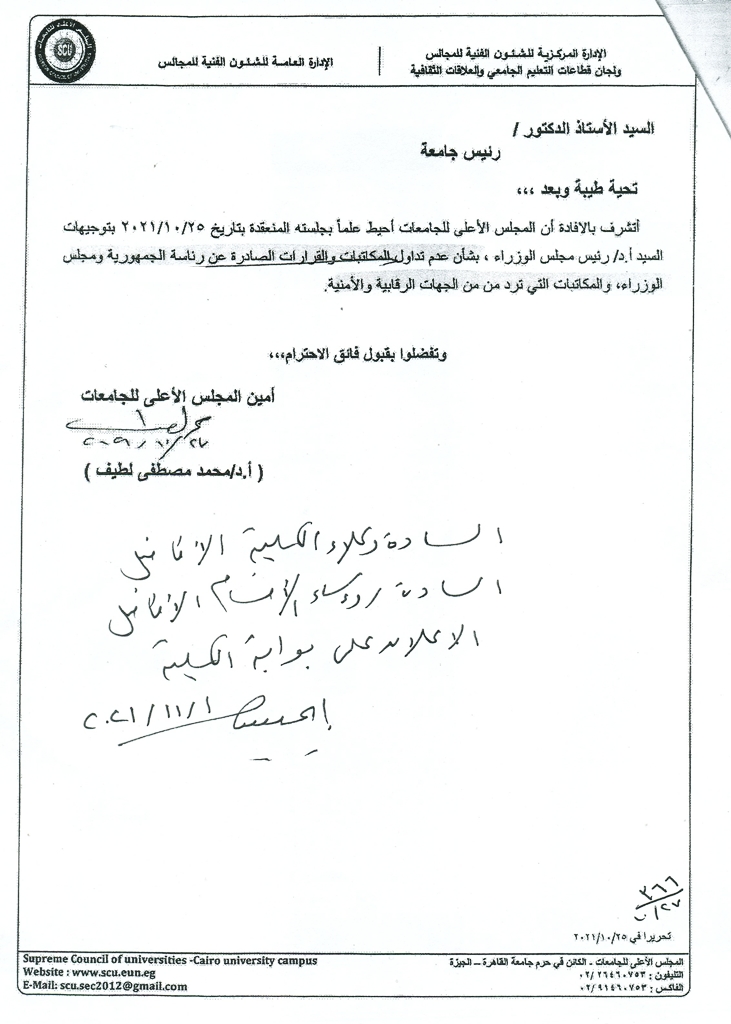 الإدارة المركزية للشئون الفنية للمجالس
ولجان قطاعات التعليم الجامعي والعلاقات الثقافية
الإدارة العامة للشئون الفنية للمجالس
SCU
السيد الأستاذ الدكتور /
رئيس جامعة
تحية طيبة وبعد ،،،
أتشرف بالافادة أن المجلس الأعلى للجامعات أحيط علماً بجلسته المنعقدة بتاريخ ٢٠٢١/١٠/٢٥ بتوجيهات
السيد أ.د/ رئيس مجلس الوزراء ، بشأن عدم تداول المكاتبات والقرارات الصادرة عن رئاسة الجمهورية ومجلس
الوزراء، والمكاتبات التي ترد من من الجهات الرقابية والأمنية.
وتفضلوا بقبول فائق الاحترام،،،
أمين المجلس الأعلى للجامعات
( أ.د/محمد مصطفى لطيف )
السادة وكلاء الكلية الأفاضل
السادة رؤساء الأقسام الأفاضل
الاعلان على بوابة الكلية
٢٠٢١/١١/١
٣٦٦
تحريرا في ٢٠٢١/١٠/٢٥
المجلس الأعلى للجامعات - الكائن في حرم جامعة القاهرة – الجيزة
التليفون : ٠٢/٢٦٤٦٠٧٥٣
الفاكس : ٠٢/٩١٤٦٠٧٥٣
Supreme Council of universities -Cairo university campus
Website : www.scu.eun.eg
E-Mail: scu.sec2012@gmail.com